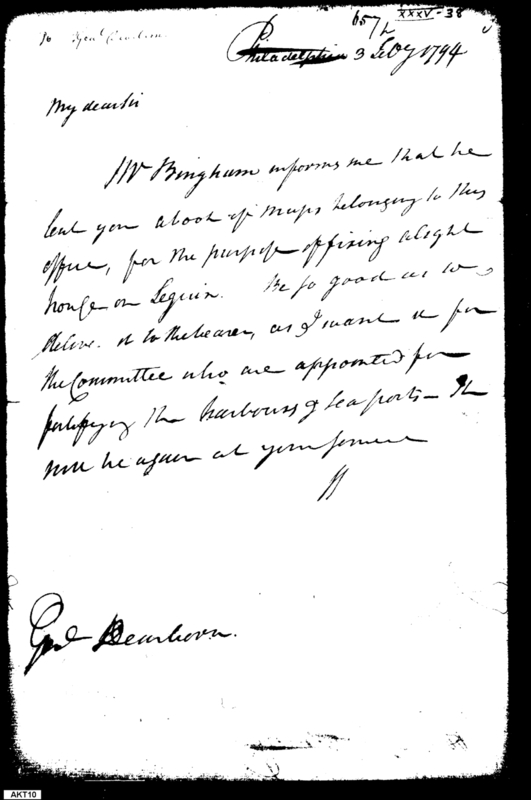 To Genl Dearborn
657 h
XXXV-38
Philadelphia 3 Feby 1794
My dear sir
Mr Bingham informs me that he
lent you a book of Maps belonging to this
office, for the purpose of fixing a light
house on Seguin. Be so good as to
deliver it to the bearer, as I want it for
the Committee who are appointed for
fortifying the harbours & sea ports – It
will be again at your service
Genl Dearborn.
AKT10